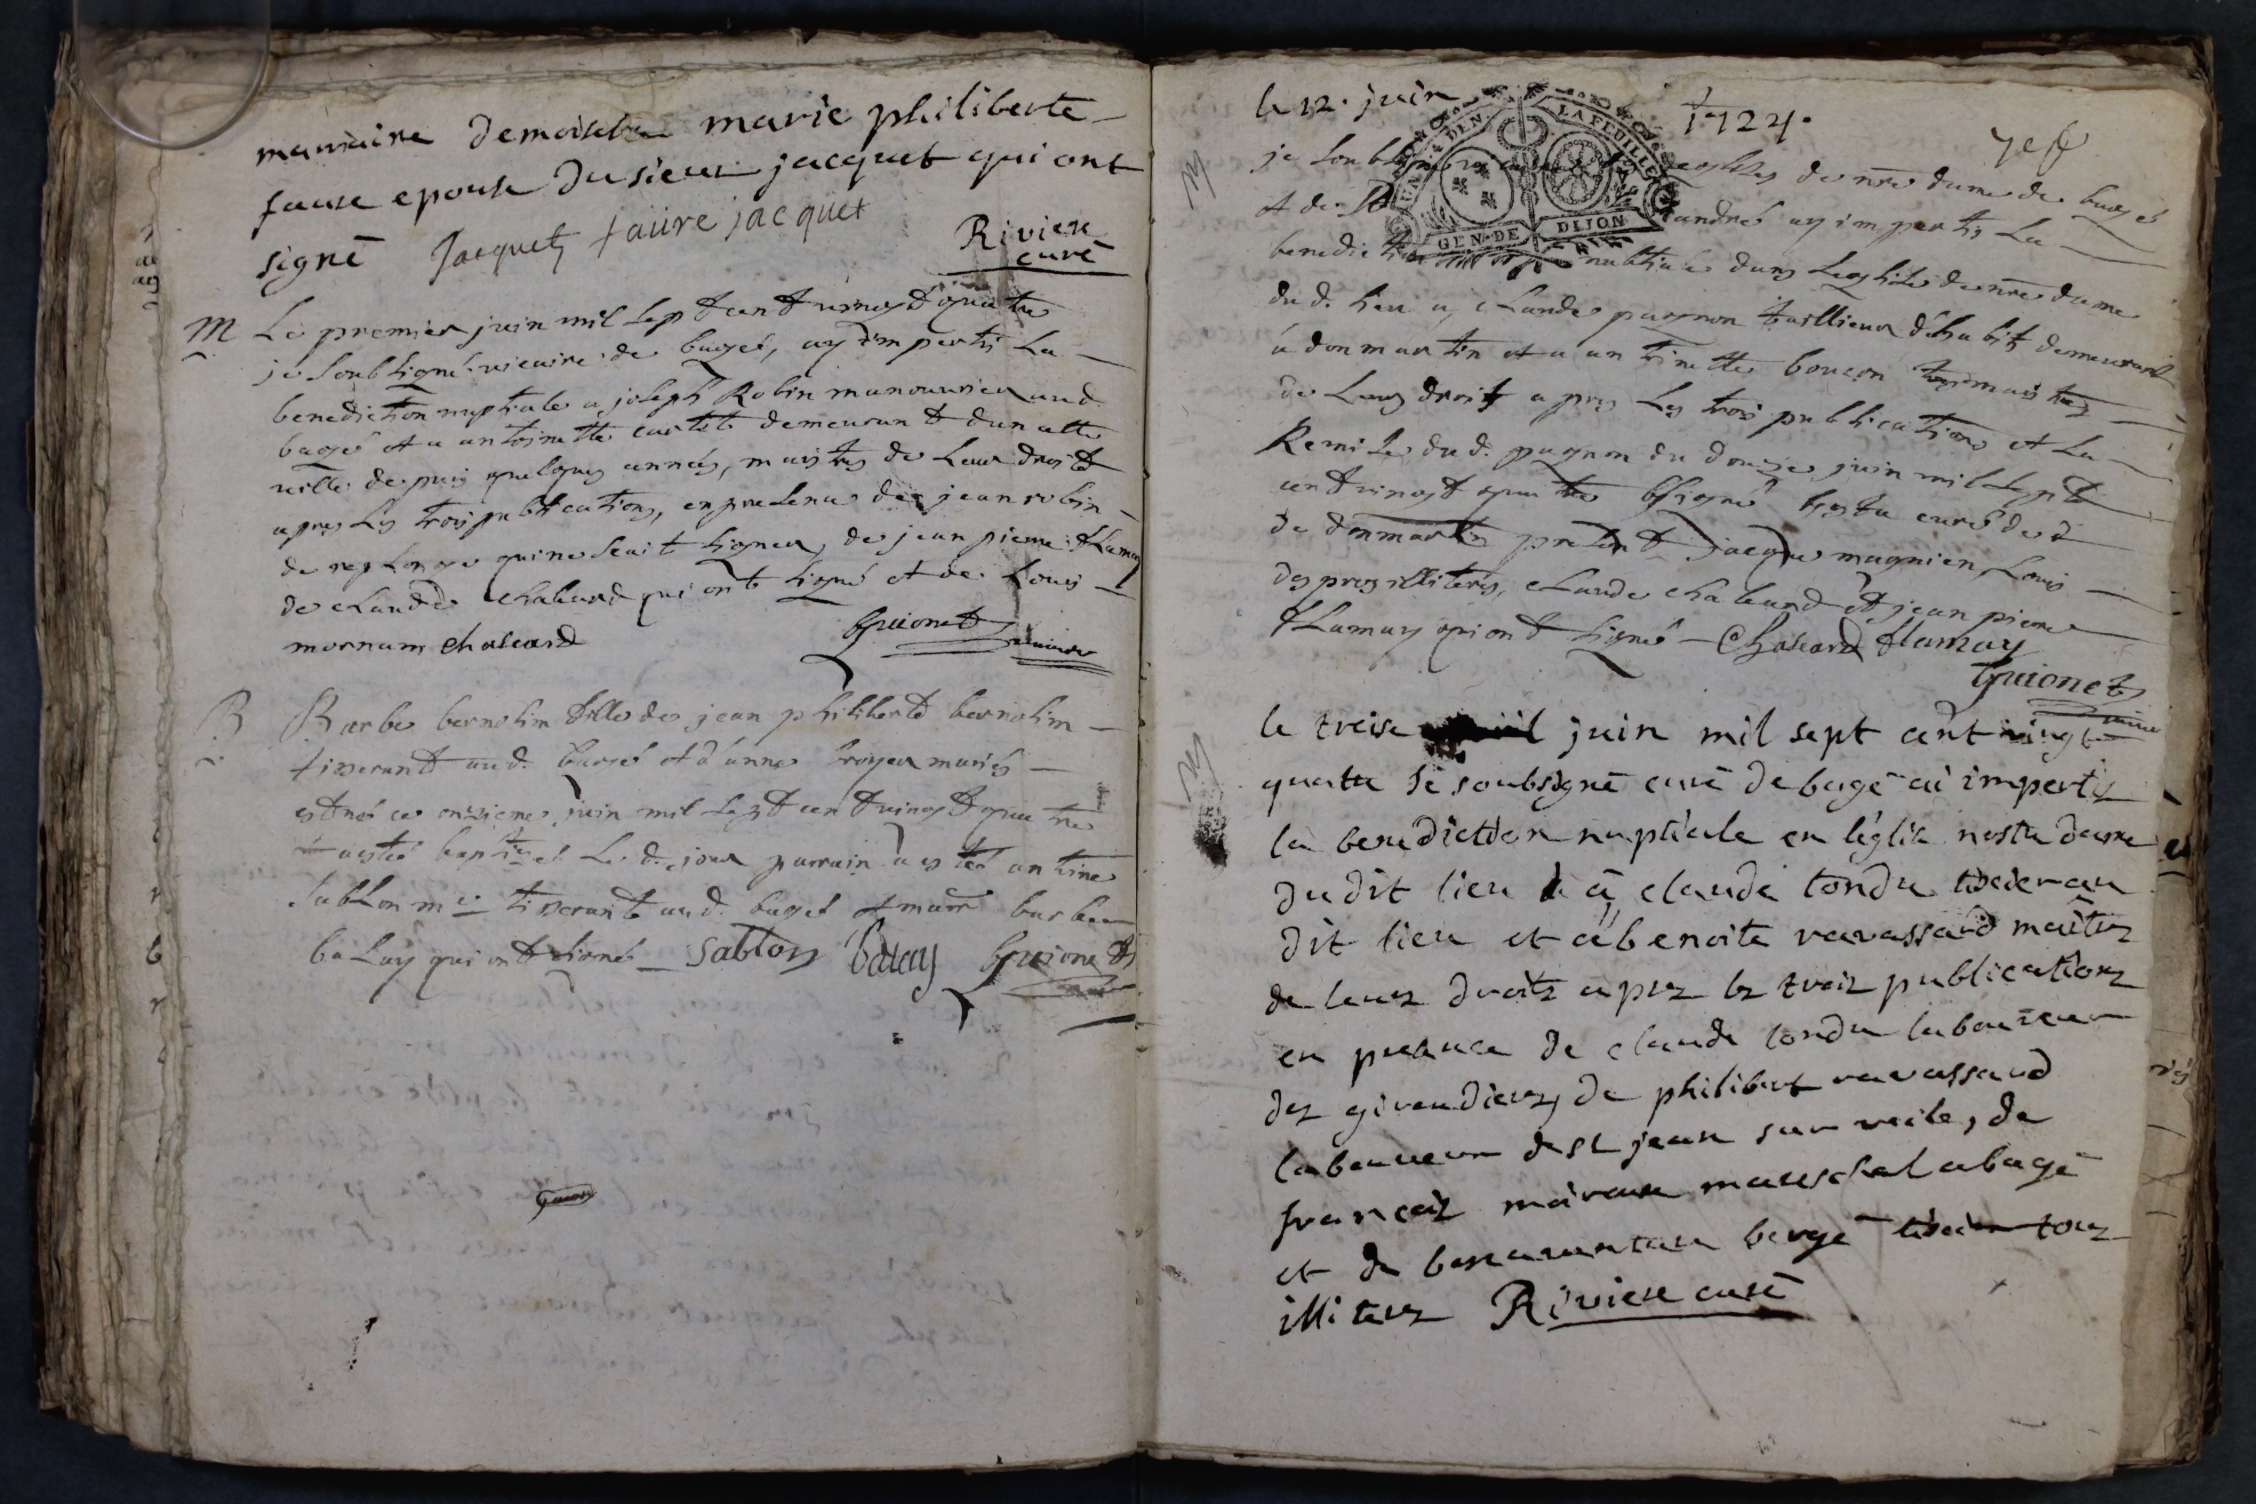 marraine demoiselle marie philiberte
faure epouse du sieur jacquet qui ont
signé Jacquet faure jacquet
Riviere
curé
M
Le premier juin mil sept cent vingt quatre
je soubsigné vicaire de bagé, ay imperti la
benediction nuptiale a joseph Robin manouvrier aud.
bagé et a antoinette demeurant dans cette
ville depuis quelques années, maistres de leur droits
apres les trois publications, en presence de jean robin
de replonge qui ne scait signer, de jean pierre flamay
de claude chaleard qui ont signé et de Louis
mornam chaleard Guionet
vicaire
B
Barbe bernolin fille de jean philibert bernolin
tisserant aud. bagé et d'anne broyer mariés
est née ce onzieme juin mil sept cent vingt quatre
a esté baptizé le d. jour parrain a esté antoine
sablon me tisserant aud. bagé et marr barbe
balay qui ont signé sablon balay Guionet
le 12. juin 1724.
7e f
M
je soubsigné vicaire des eglises de nre dame de bagé
et de St andré ay imperti la
benediction nubtiale dans leglise de nre dame
du d. lieu a claude pagnon taillieur d'habits demeurant
à donmartin et a antoinette bouson maistres
de leurs droits apres les trois publications et la
Remise du d. pagnon du douze juin mil sept
cent vingt quatre signé curé de
de donmartin present jacque magnien, Louis
despres illiterés, claude chaleard et jean pierre
flamay qui ont signé chaleard flamay
Guionet
vicaire
GEN. DE DIJON
LA FEUILLE
M
le treise juin mil sept cent vingt
quatre je soubsigné curé de bagé ai imperty
la benediction nuptiale en l'église nostre dame
dudit lieu à claude tondu tisseran
dit lieu et à benoite ravassard maîtres
de leurs droits apres les trois publications
en presence de claude tondu laboureur
des girandieres, de philibert ravassard
laboureur de st jean sur veile, de
françois mareschal a bagé
et de bonaventure bergé tous
illiteres Riviere curé